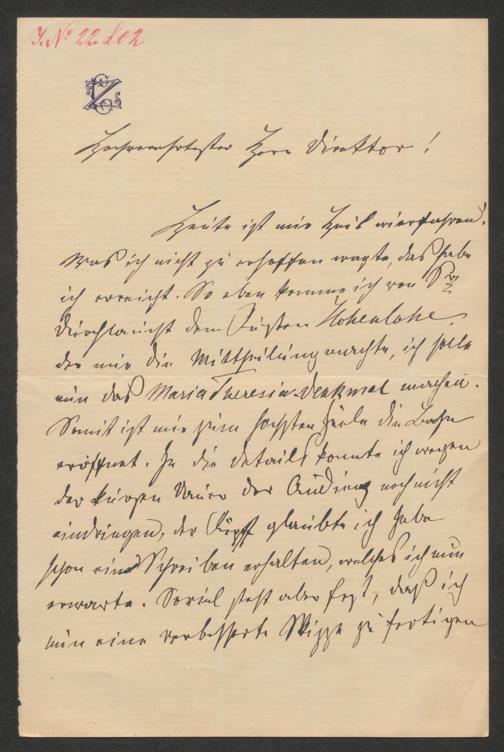 J. N° 22 602
Hochverehrtester Herr Direktor!
Heute ist mir Heil wiederfahren!
Was ich nicht zu erhoffen wagte, das habe
ich erreicht. So eben komme ich von Sr
Durchlaucht dem Fürsten Hohenlohe,
der mir die Mittheilung machte, ich solle
nun das Maria Theresia-Denkmal machen.
Somit ist mir zum höchsten Ziele die Bahn
eröffnet. In die Details konnte ich wegen
der kurzen Dauer der Audienz noch nicht
eindringen, der Fürst glaubte ich habe
schon ein Schreiben erhalten, welches ich nun
erwarte. Soviel steht aber fest, daß ich
nun eine verbesserte Skizze zu fertigen